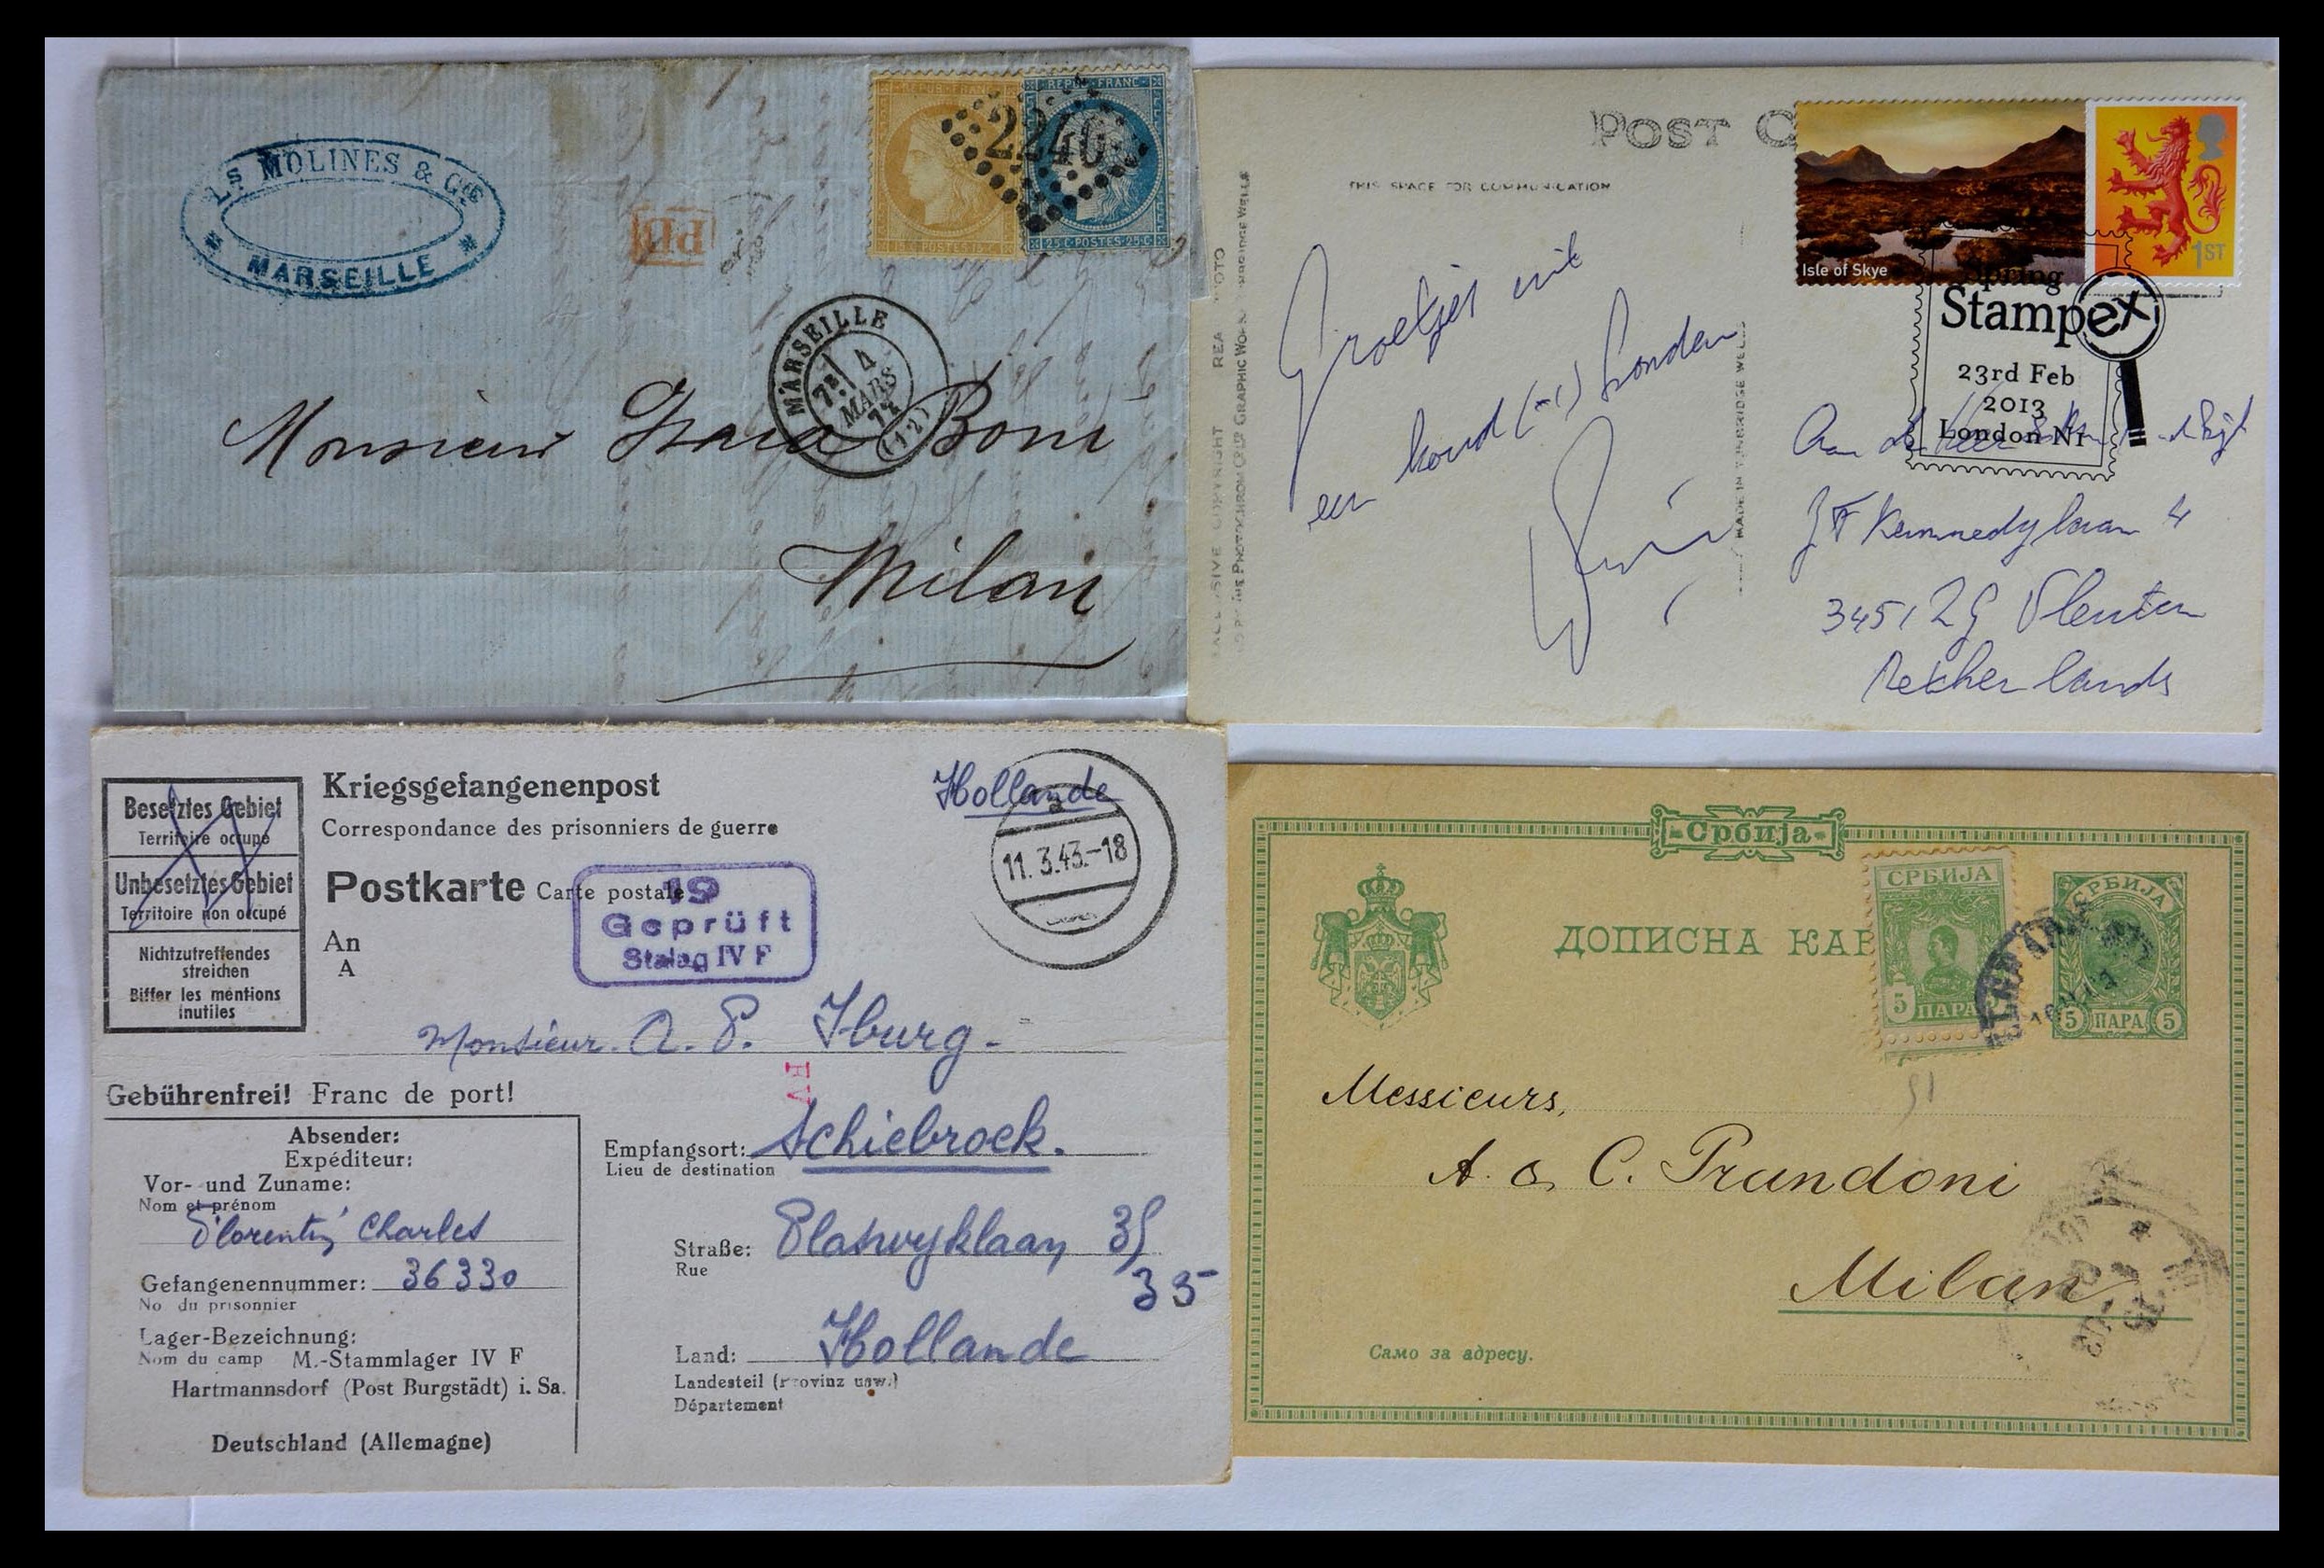 Ls MOLINES & Cie
MARSEILLE
REPUB FRANC
15 C POSTES 15 C
REPUB FRANC
25 C POSTES 25 C
2240
PD
MARSEILLE
4
MARS
(12)
Monsieur Isaia Boni
Milan
POST C
THIS SPACE FOR COMMUNICATION
MADE IN TUNBRIDGE WELLS
Isle of Skye
1ST
Spring
Stampex
23rd Feb
2013
London N1
Groetjes uit
een koud (-1) Londen
Aan de Heer
JF Kennedylaan 4
3451 ZG Vleuten
Netherlands
Besetztes Gebiet
Territoire occupé
Unbesetztes Gebiet
Territoire non occupé
Nichtzutreffendes
streichen
Biffer les mentions
inutiles
Kriegsgefangenenpost
Correspondance des prisonniers de guerre
Hollande
11.3.43.-18
Postkarte Carte postale
19
Geprüft
Stalag IV F
An
A
Monsieur. A. P. Iburg.
Gebührenfrei! Franc de port!
Absender:
Expéditeur:
Vor- und Zuname:
Nom et prénom
Florentin Charles
Gefangenennummer: 36330
No du prisonnier
Lager-Bezeichnung:
Nom du camp M.-Stammlager IV F
Hartmannsdorf (Post Burgstädt) i. Sa.
Deutschland (Allemagne)
Empfangsort: Schiebroek.
Lieu de destination
Straße: Plaswyklaan 35
Rue
35
Land: Hollande
Landesteil (Provinz usw.)
Département
Србија
ДОПИСНА КАР
СРБИЈА
5 ПАРА
СРБИЈА
5 ПАРА 5
51
Messieurs,
A. & C. Prandoni
Milan
Само за адресу.